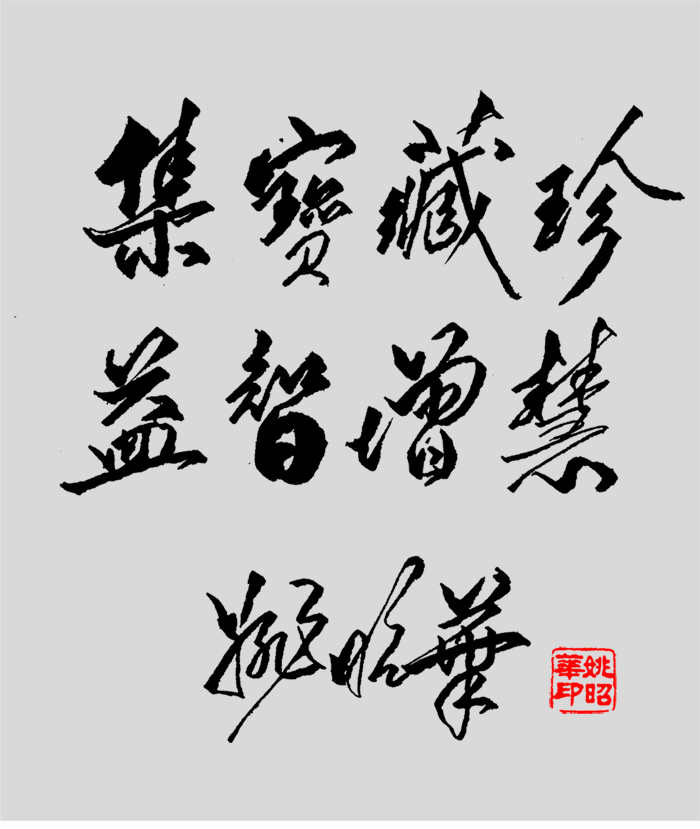 集寶藏珍
益智增慧
姚昭華
姚昭華印